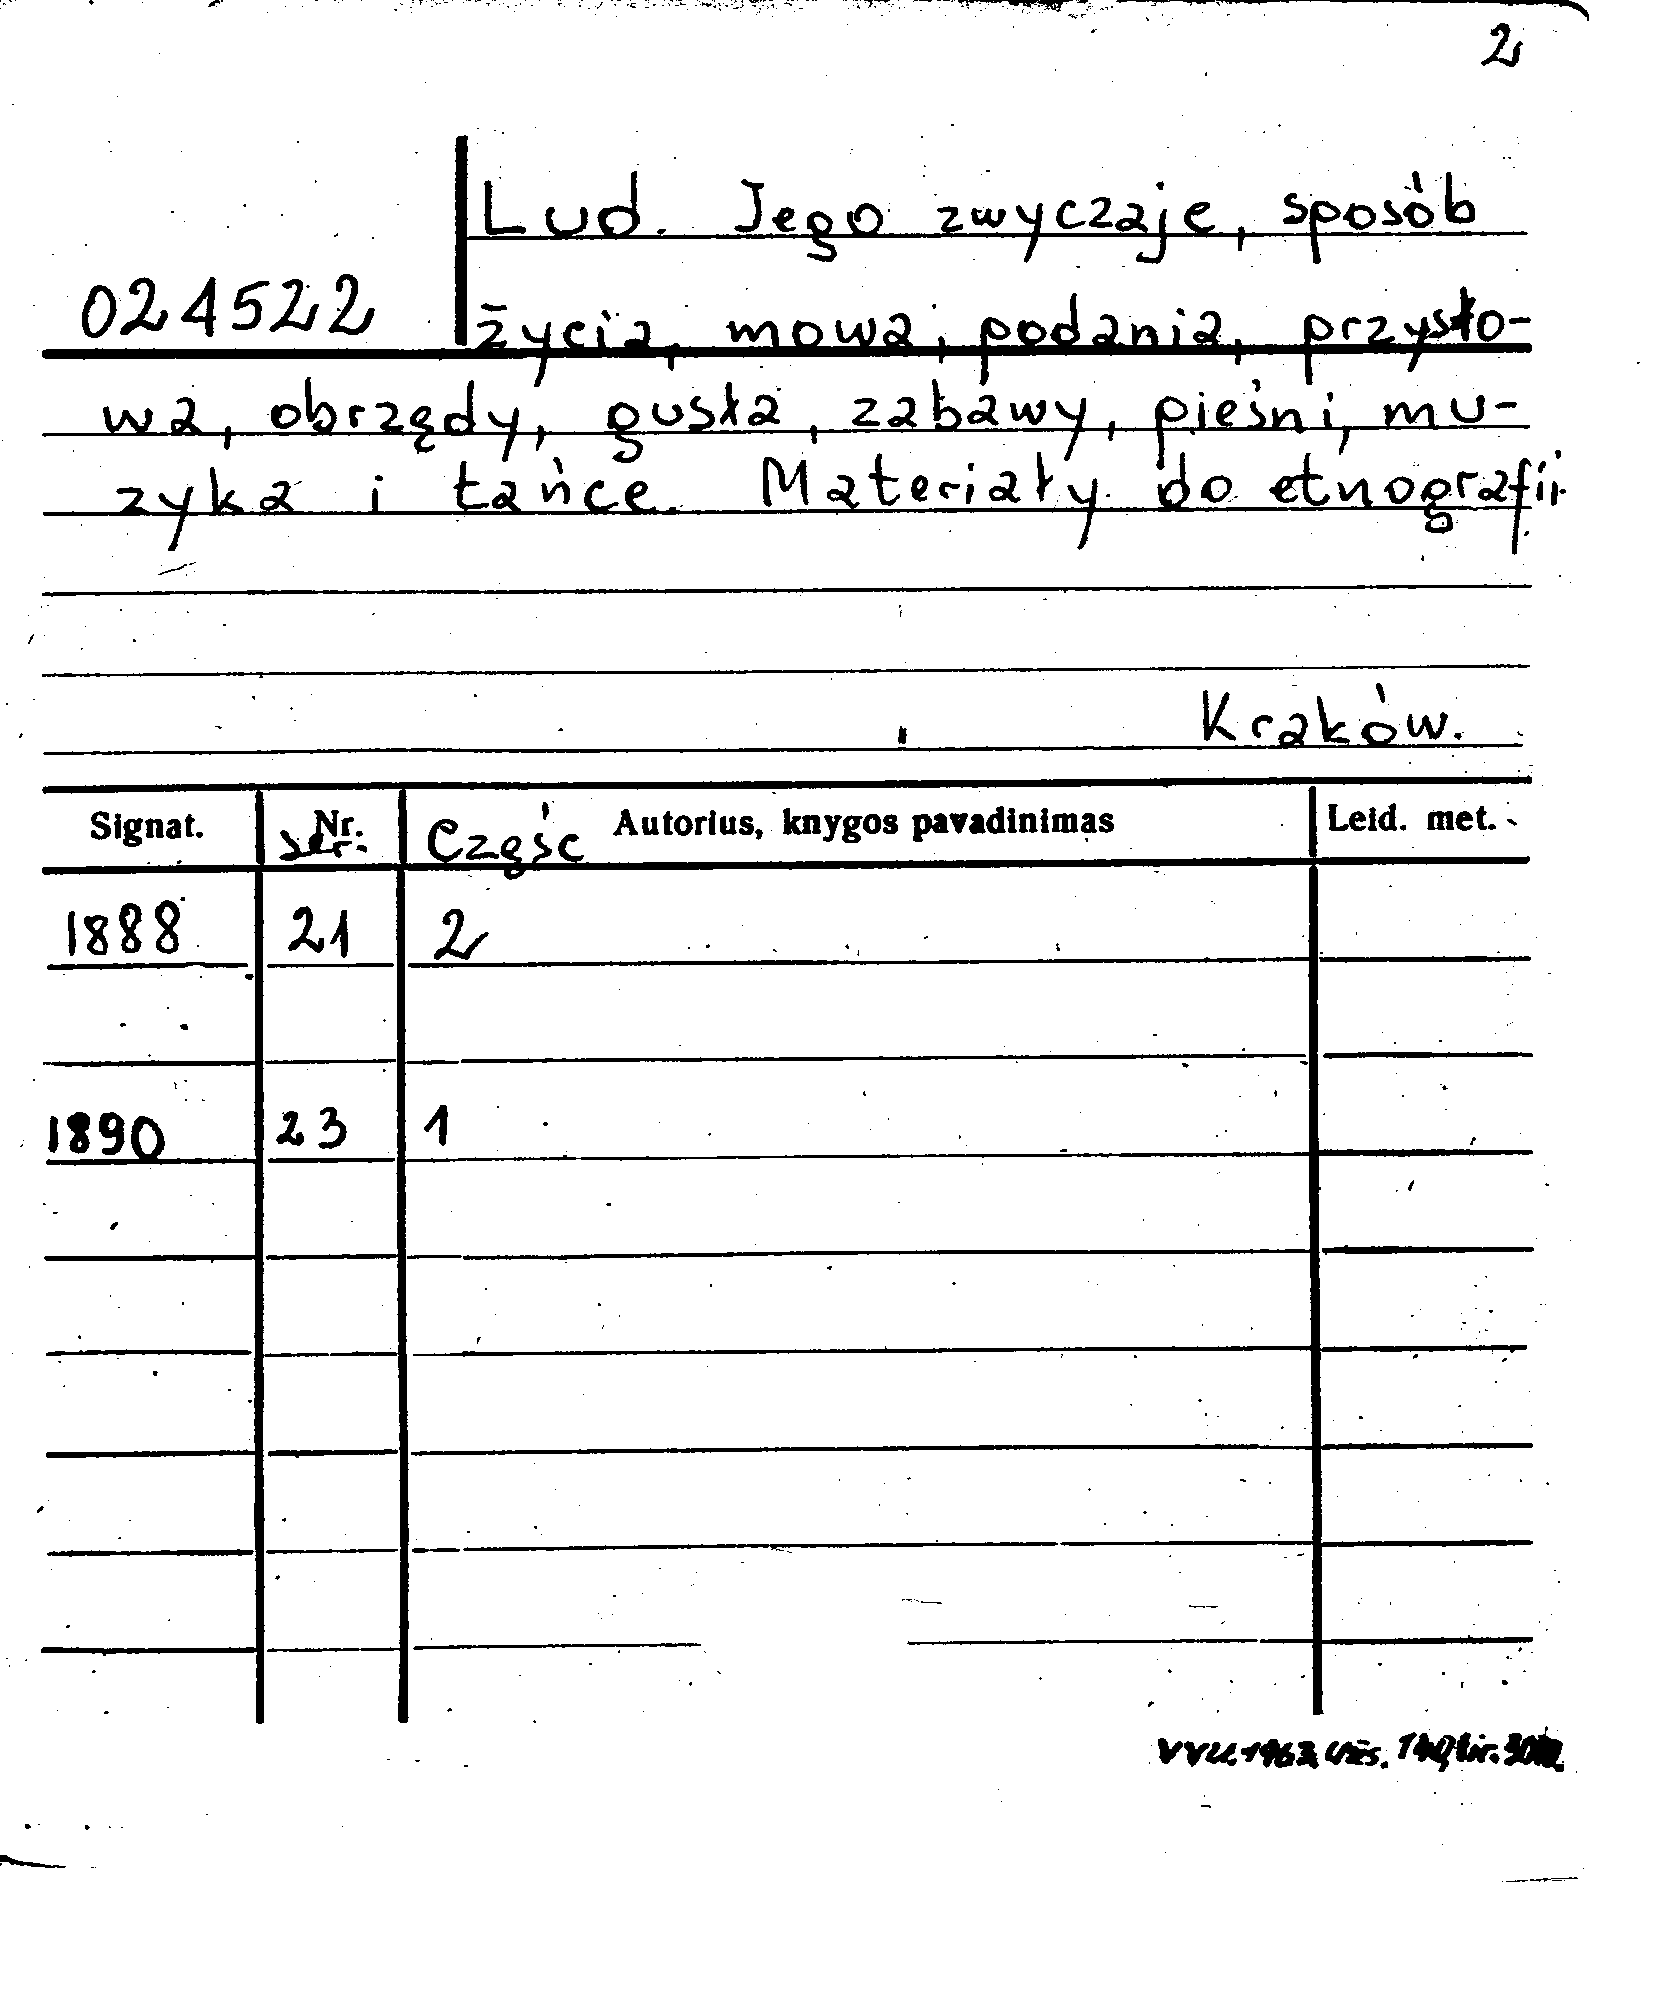 2
Lud. Jego zwyczaje, sposób
024522
życia, mowa, podania, przysło-
wa, obrzędy, gusła, zabawy, pieśni, mu-
zyka i tańce. Materiały do etnografii.
Kraków.
Signat. Nr. ser. Część Autorius, knygos pavadinimas Leid. met.
1888 21 2
1890 23 1
VVU-1963 Užs.